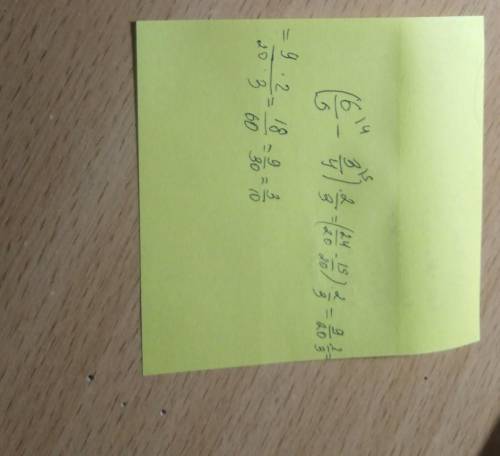 (6/5 \4 − 3/4 \5) · 2/3 = (24/20 − 15/20) · 2/3 = 9/20 · 2/3 =
= 9 · 2 / 20 · 3 = 18/60 = 9/30 = 3/10